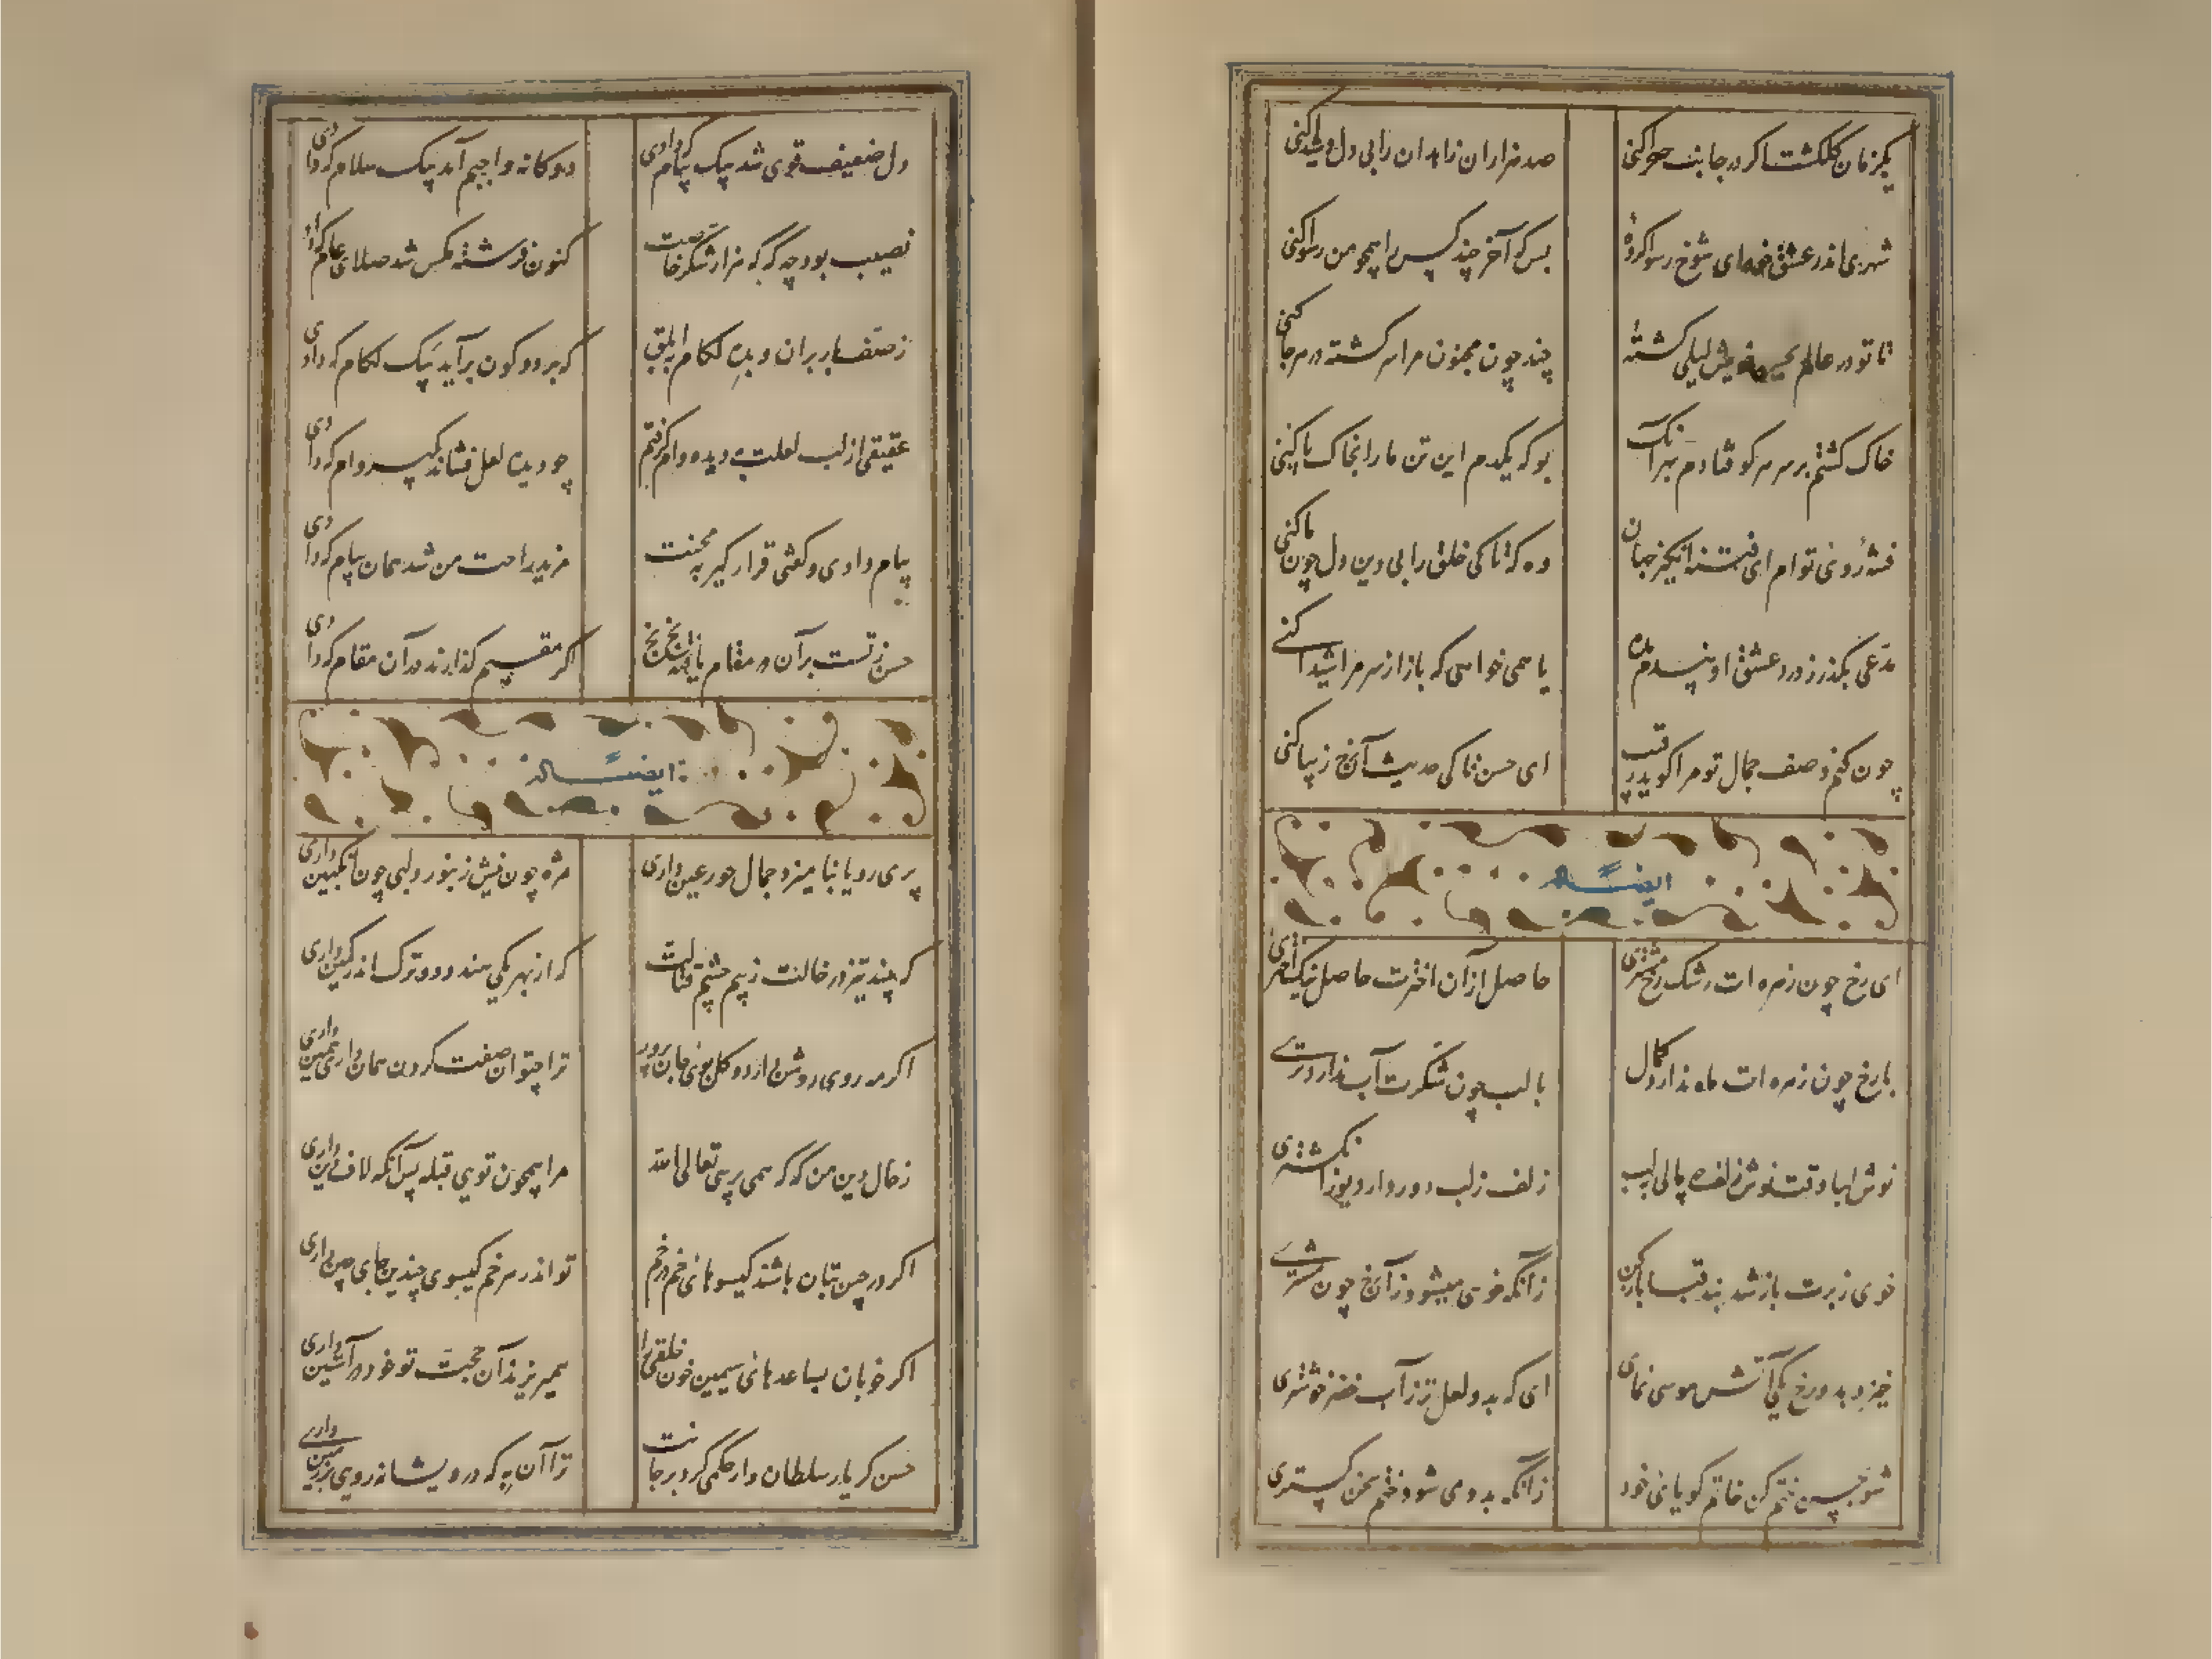 یکزمان گلگشت ا کر در جانب صحرا کنی
صد هزاران زاهدان را بی دل و شیدا کنی
شهری اندر عشق خود ای شوخ رسوا کردهٔ
بس که آخر چند کس را همچو من رسوا کنی
تا تو در عالم بحسن خویش لیلی گشتهٔ
چند چون مجنون مرا سر گشته در هر جا کنی
خاک گشتم بر سر هر کو فتادم بهر آنک
بو که یکدم این تن ما را بخاک پا کنی
فتنهٔ روی توام ای فتنه انگیز جهان
وه که تا کی خلق را بی دین و دل چون ما کنی
مدعی بگذر ز درد عشق او پندم مده
یا همی خواهی که باز از سر مرا شیدا کنے
چون کنم وصف جمال تو مرا گوید رقیب
ای حسن تا کی حدیث آن رخ زیبا کنی
ایضاً له
ای رخ چون زهره ات رشک رخ مشتری
حاصل از آن اخترت حاصل نیک اختری
با رخ چون زهره ات ماه ندارد کمال
با لب چون شکرت آب ندارد ترے
زلف ز لب دور دار دیو ز انگشتری
خوی ز برت باز شد بند قبا باز کن
زانکه خوی میشود زان رخ چون مشترے
خیز و بدو رخ یکی آتش موسی نمای
ای که بدو لعل تر ز آب خضر خوشتری
شو حسن ختم کن خاتم گویائی خود
زانکه بدو می شود ختم سخن گستری
دل ضعیف قوی شد پیک پیام که دادی
دوگانه واجبم آمد پیک سلام که دادی
نصیب بود چه گر گه هزار شکر خاصت
کنون فرشته مگس شد صلای عام که دادی
ز صف بار بران و بده لکام ابلق
که بر دو کون برآید پیک لکام که دادی
عقیقی از لب لعلت بدیده وام گرفتم
چو دیده لعل فشاند کیسه وام که دادی
پیام دادی و گفتی قرار گیر به محنت
مزید راحت من شد همان پیام که دادی
اگر مقیم گذارند در آن مقام که دادی
ایضاً له
پری رویا بنامیزد جمال حور عین داری
مژه چون نیش زنبور و لبی چون انگبین داری
که بیند تیز در خالت ز بیم چشم فتانت
که از بهر یکی هندو دو ترک اندر کمین داری
اگر مه روی روشن دارد و گل بوی جان پرور
ترا چتوان صفت کردن همان داری همین داری
ز حال دین من گه گه همی پرسی تعالی الله
مرا همچون تویی قبله پس آنگه لاف دین داری
اگر در چین بتان باشند گیسوهای خم در خم
تو اندر هر خم گیسوی چندین جای چین داری
اگر خوبان بساعدهای سیمین خون خلقی را
همیریزند آن محبت تو خود در آستین داری
حسن گر یار سلطان وار حکمی کرد بر جانت
ترا آن به که درویشانه روی بر زمین دارے